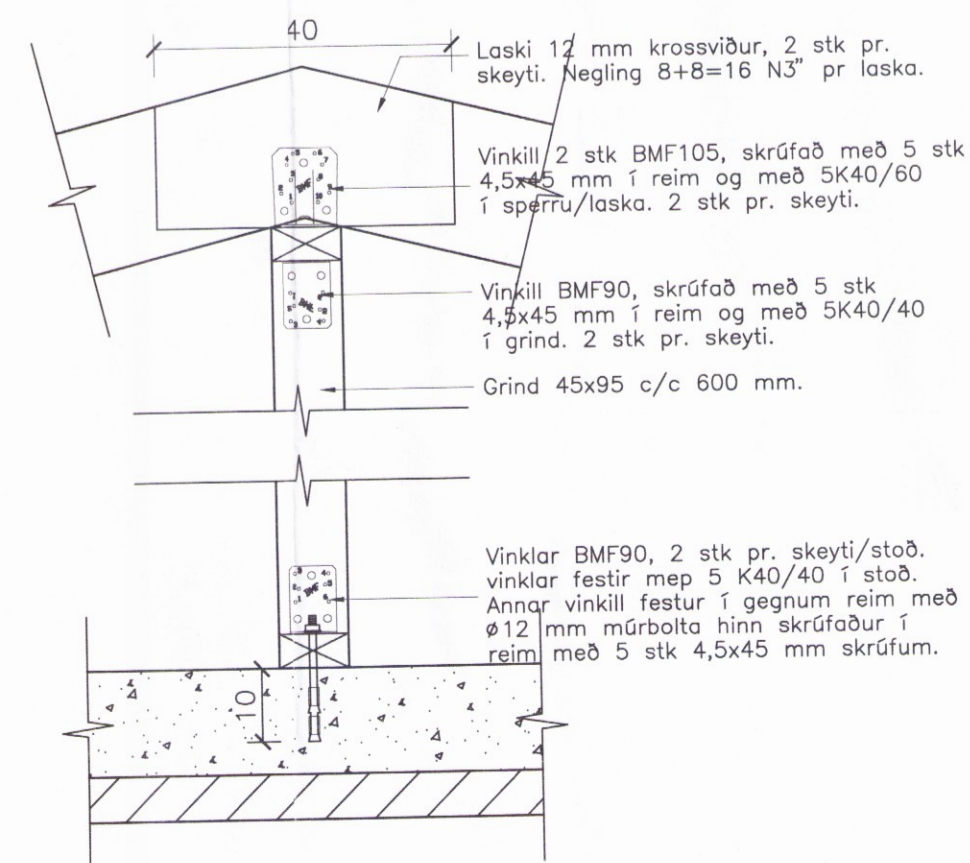 40
Laski 12 mm krossviður, 2 stk pr.
skeyti. Negling 8+8=16 N3" pr laska.
Vinkill 2 stk BMF105, skrúfað með 5 stk
4,5x45 mm í reim og með 5K40/60
í sperru/laska. 2 stk pr. skeyti.
Vinkill BMF90, skrúfað með 5 stk
4,5x45 mm í reim og með 5K40/40
í grind. 2 stk pr. skeyti.
Grind 45x95 c/c 600 mm.
Vinklar BMF90, 2 stk pr. skeyti/stoð.
vinklar festir mep 5 K40/40 í stoð.
Annar vinkill festur í gegnum reim með
ø12 mm múrbolta hinn skrúfaður í
reim með 5 stk 4,5x45 mm skrúfum.
10